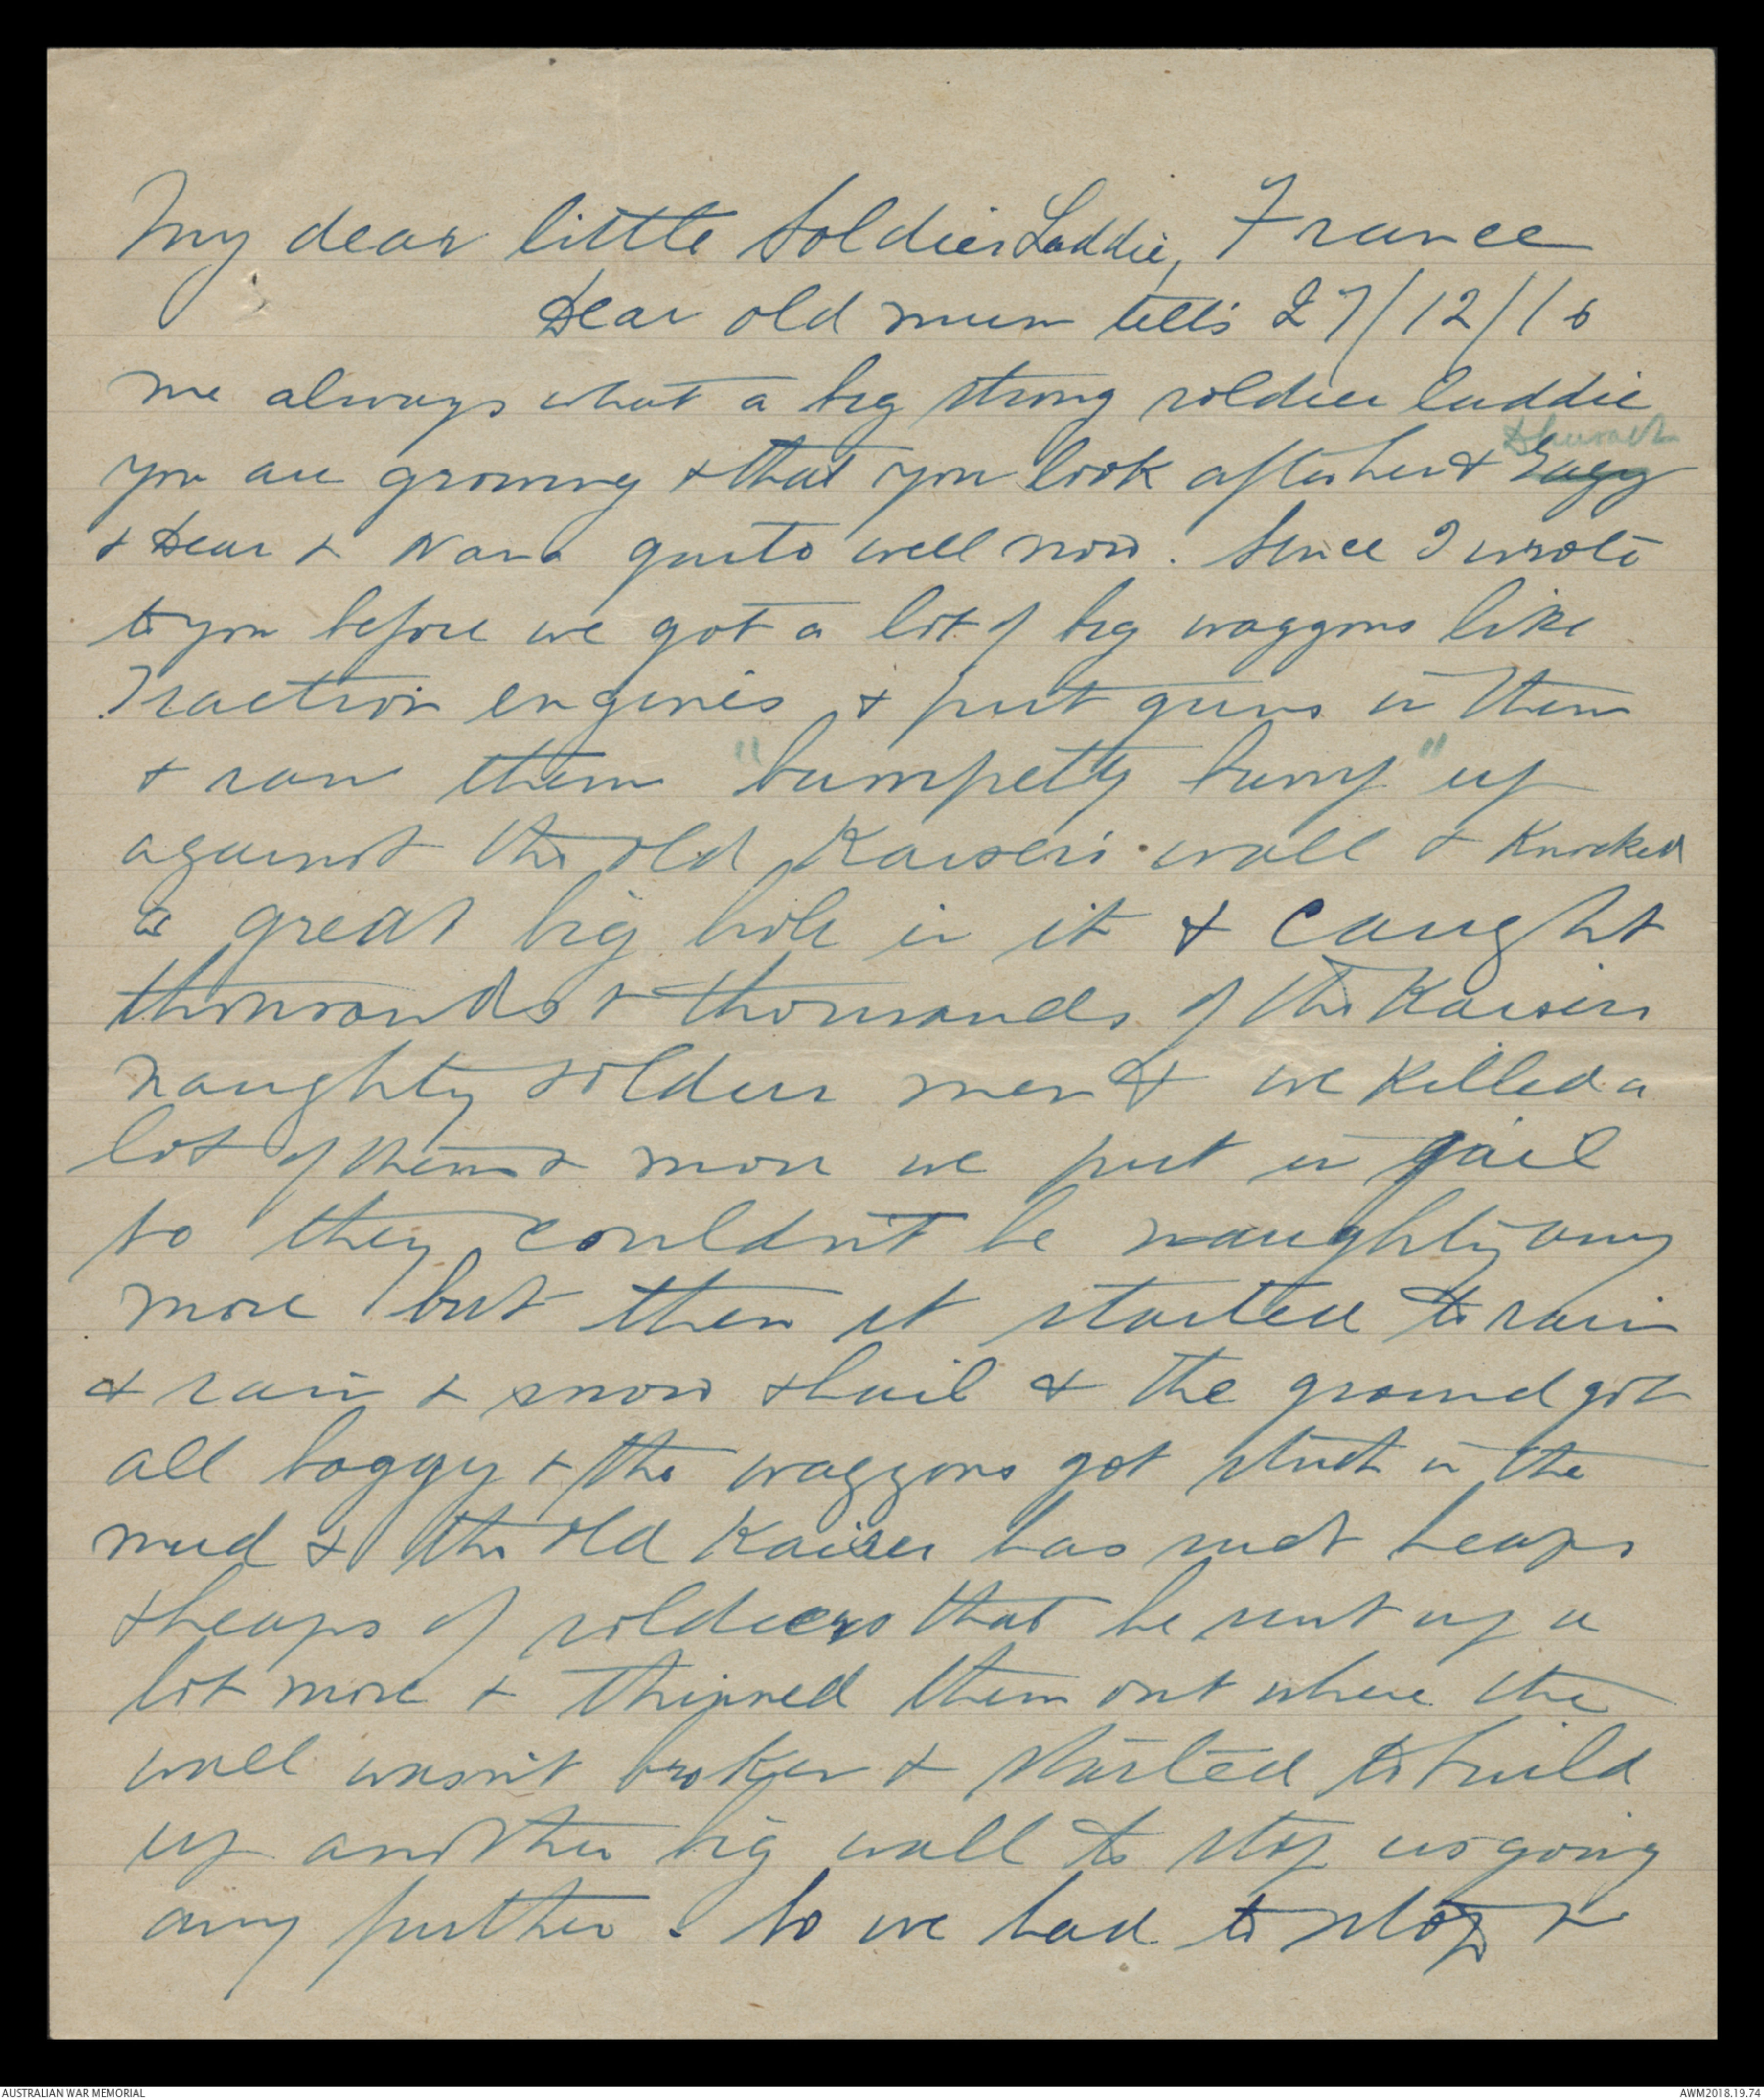 My dear little Soldier Laddie, France
Dear old mum tells 27/12/16
me always what a big strong soldier laddie
you are growing & that you look after her &
& Dear & Nana quite well now. Since I wrote
to you before we got a lot of big waggons like
Traction engines & put guns in them
& ran them "bumpetty bump" up
against the old Kaisers wall & knocked
a great big hole in it & caught
thousands & thousands of the Kaisers
naughty soldier men & we killed a
lot of them & more we put in gail
so they couldn't be naughty any
more but then it started to rain
& rain & snow & hail & the ground got
all boggy & the waggons got stuck in the
mud & the old Kaiser has such heaps
& heaps of soldiers that he sent up a
lot more & thinned them out where the
wall wasn't broken & started to build
up another big wall to stop us going
any further. So we had to stop &
AUSTRALIAN WAR MEMORIAL
AWM2018.19.74